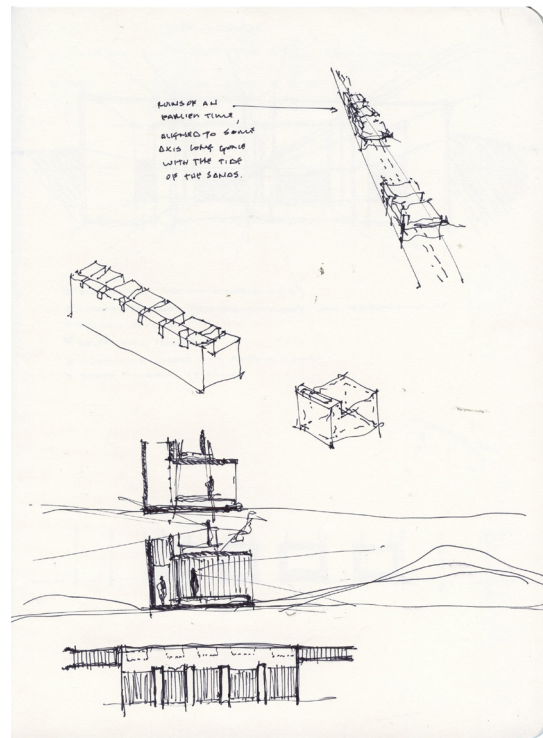 RUINS OF AN
EARLIER TIME,
ALIGNED TO SOME
AXIS LONG GONE
WITH THE TIDE
OF THE SANDS.